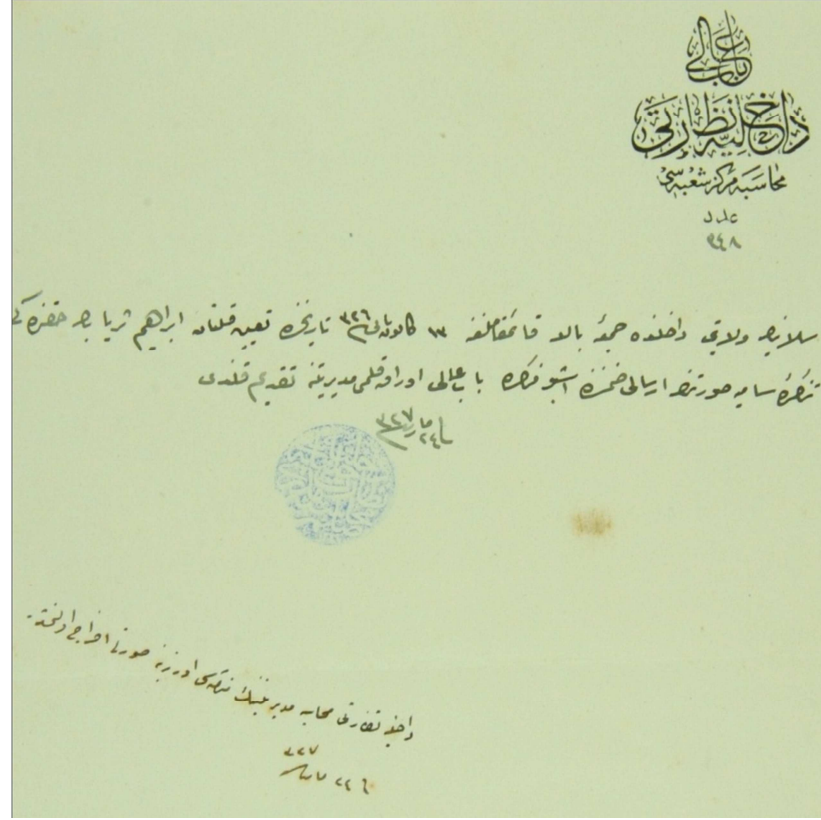 باب عالی
داخلیه نظارتی
محاسبه مرکز شعبه سی
عدد
٣٤٨
سلانیك ولایتی داخلنده جمعهٔ بالا قائمقاملغنه ١٣ كانون ثانی ٣٢٦ تاریخنده تعیین قلنان ابراهیم ثریا بك حقنده كی
تذكرهٔ سامیه صورتنك ارسالی ضمننده اشبو تذكره باب عالی اوراق قلمی مدیریتنه تقدیم قلندی
٢٤ مارت ٣٢٧
داخلیه نظارتی محاسبه مدیریتنك تذكره سی اوزرینه صورتی اخراج اولنمشدر
٣٢٧
مارت